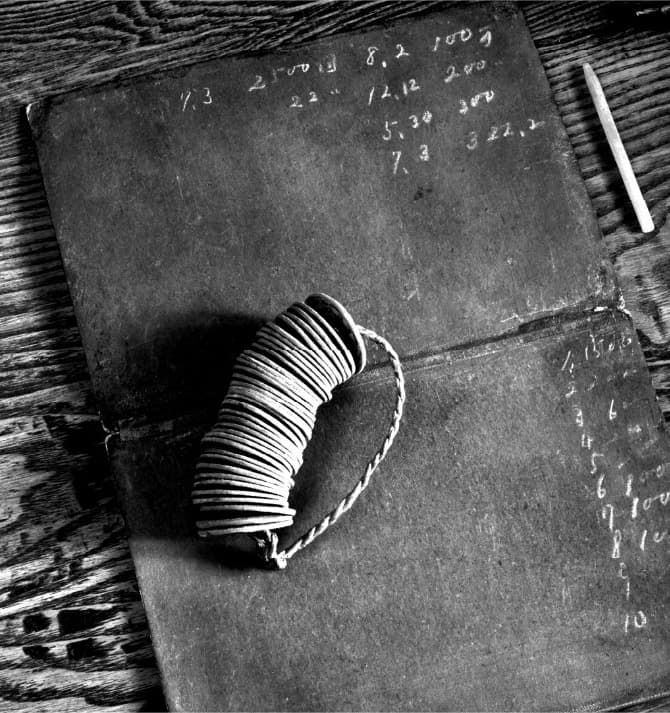 7.3 2500 8.2 100
22 12.12 200
5.30 300
7.3 322.2
1.150
2
3 6
4
5
6 100
7 100
8 10
9
10